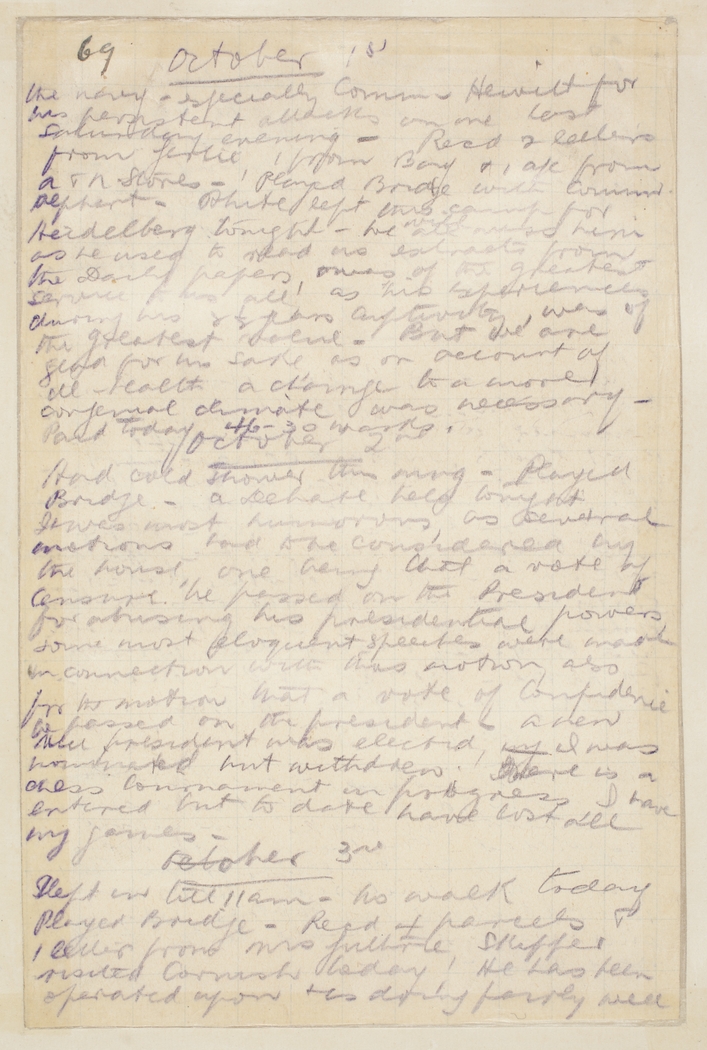 69 October 1st
the navy - especially Comm Hewitt for
his persistent attacks on me last
Saturday evening - Recd 2 letters
from Gertie, 1 from Bay & 1 a/c from
A & N Stores - Played Bridge with
White left this camp for
Heidelberg tonight - we miss him
as he used to read us extracts from
the Daily papers, & was of the greatest
service to us all, as his experiences
during his years captivity, was of
the greatest value - But we are
glad for his sake as on account of
ill-health a change to a more
congenial climate was necessary -
Paid today 46-30 marks.
October 2nd
Had cold shower this mng - Played
Bridge - a Debate held tonight
It was most humorous as several
motions had to be considered by
the house, one being that a vote of
Censure be passed on the President
for abusing his presidential powers,
some most eloquent speeches were made
in connection with this motion also
for the motion that a vote of Confidence
be passed on the president & a new
president was elected, I was
nominated but withdrew. There is a
chess tournament in progress I have
entered but to date have lost all
my games -
October 3rd
Slept in till 11am - No walk today
Played Bridge - Recd 4 parcels &
1 letter from Mrs Guthrie, Skipper
visited Cornish today! He has been
operated upon & is doing fairly well